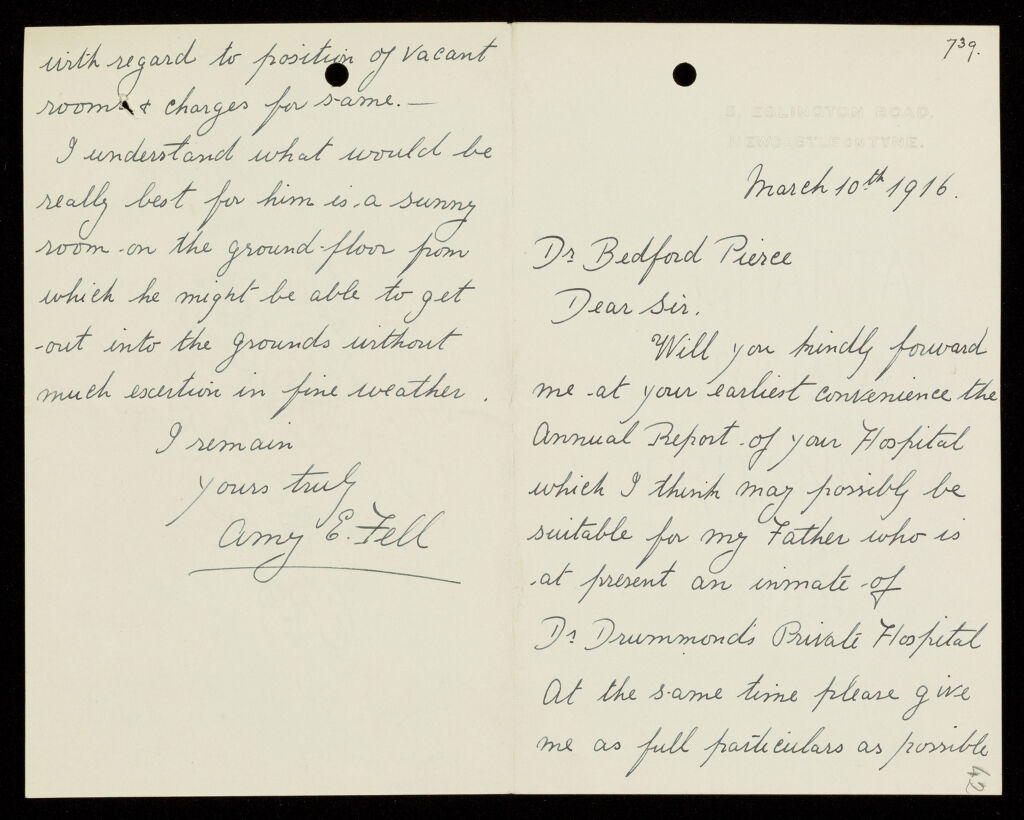 739.
5, ESLINGTON ROAD,
NEWCASTLE ON TYNE.
March 10th 1916.
Dr Bedford Pierce
Dear Sir.
Will you kindly forward
me at your earliest convenience the
Annual Report of your Hospital
which I think may possibly be
suitable for my Father who is
at present an inmate of
Dr Drummond's Private Hospital
At the same time please give
me as full particulars as possible
42
with regard to position of vacant
rooms & charges for same. —
I understand what would be
really best for him is a sunny
room on the ground-floor from
which he might be able to get
out into the grounds without
much exertion in fine weather.
I remain
yours truly
Amy E. Fell